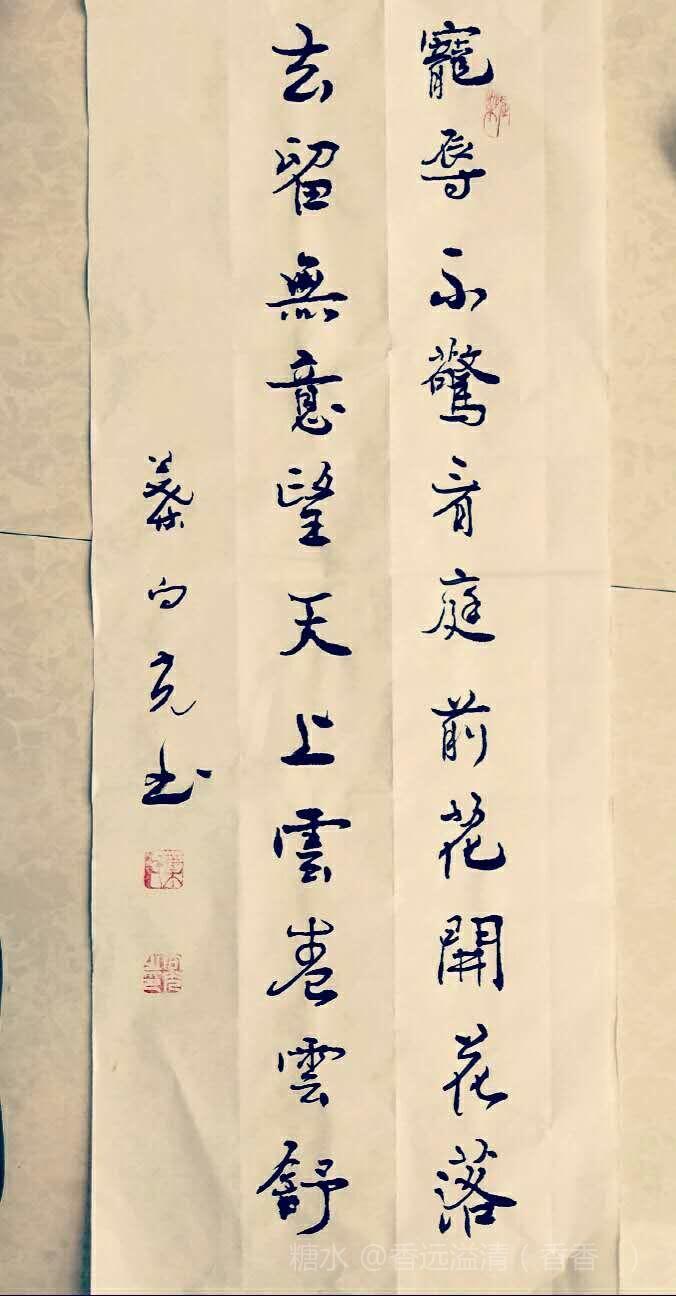 寵辱不驚看庭前花開花落
去留無意望天上雲卷雲舒
葉向克书
糖水 @香远溢清（香香 ）